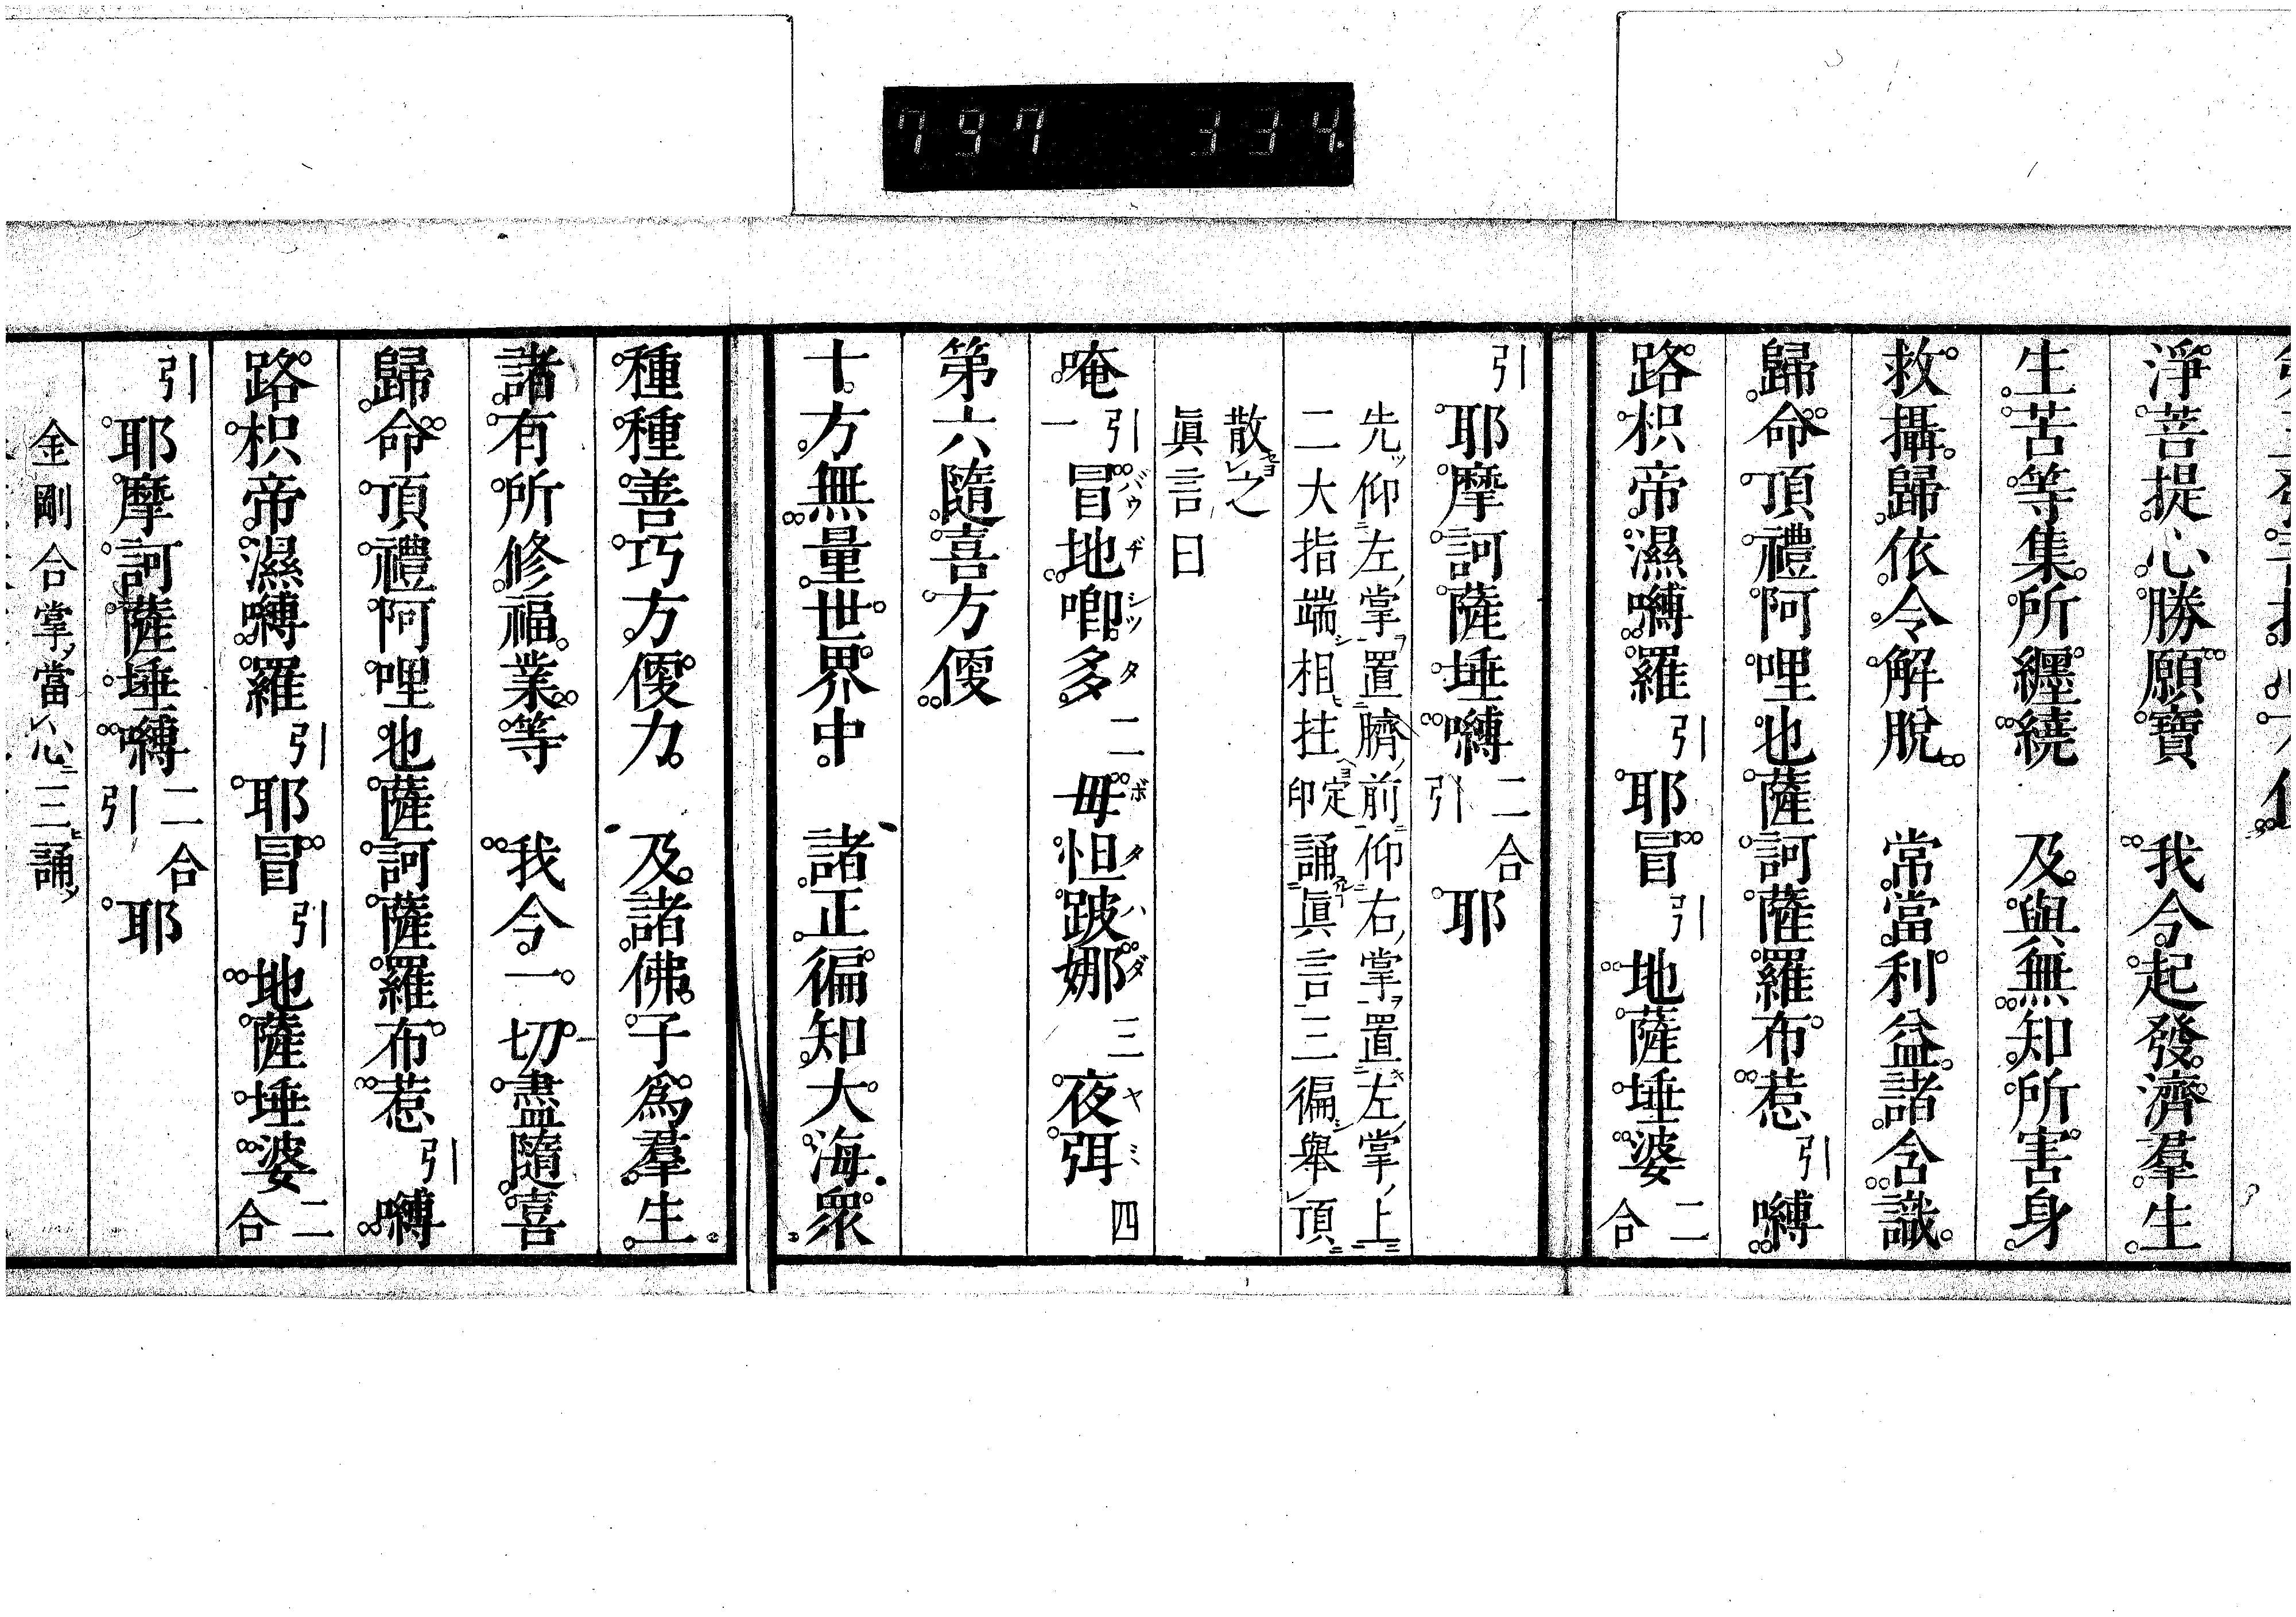 797 334
淨菩提心勝願寶 我今起發濟羣生
生苦等集所纏繞 及與無知所害身
救攝歸依令解脫 常當利益諸含識
歸命頂禮阿哩也薩訶薩羅布惹引嚩
路枳帝濕嚩羅引耶冒引地薩埵婆二合
引耶摩訶薩埵嚩二合引耶
先仰左掌置臍前仰右掌置左掌上
二大指端相拄定印誦眞言三徧舉頂
散之
眞言曰
唵引一冒地唧多二毋怛跛娜三夜弭四
第六隨喜方便
十方無量世界中 諸正徧知大海衆
種種善巧方便力 及諸佛子爲羣生
諸有所修福業等 我今一切盡隨喜
歸命頂禮阿哩也薩訶薩羅布惹引嚩
路枳帝濕嚩羅引耶冒引地薩埵婆二合
引耶摩訶薩埵嚩二合引耶
金剛合掌當心三誦